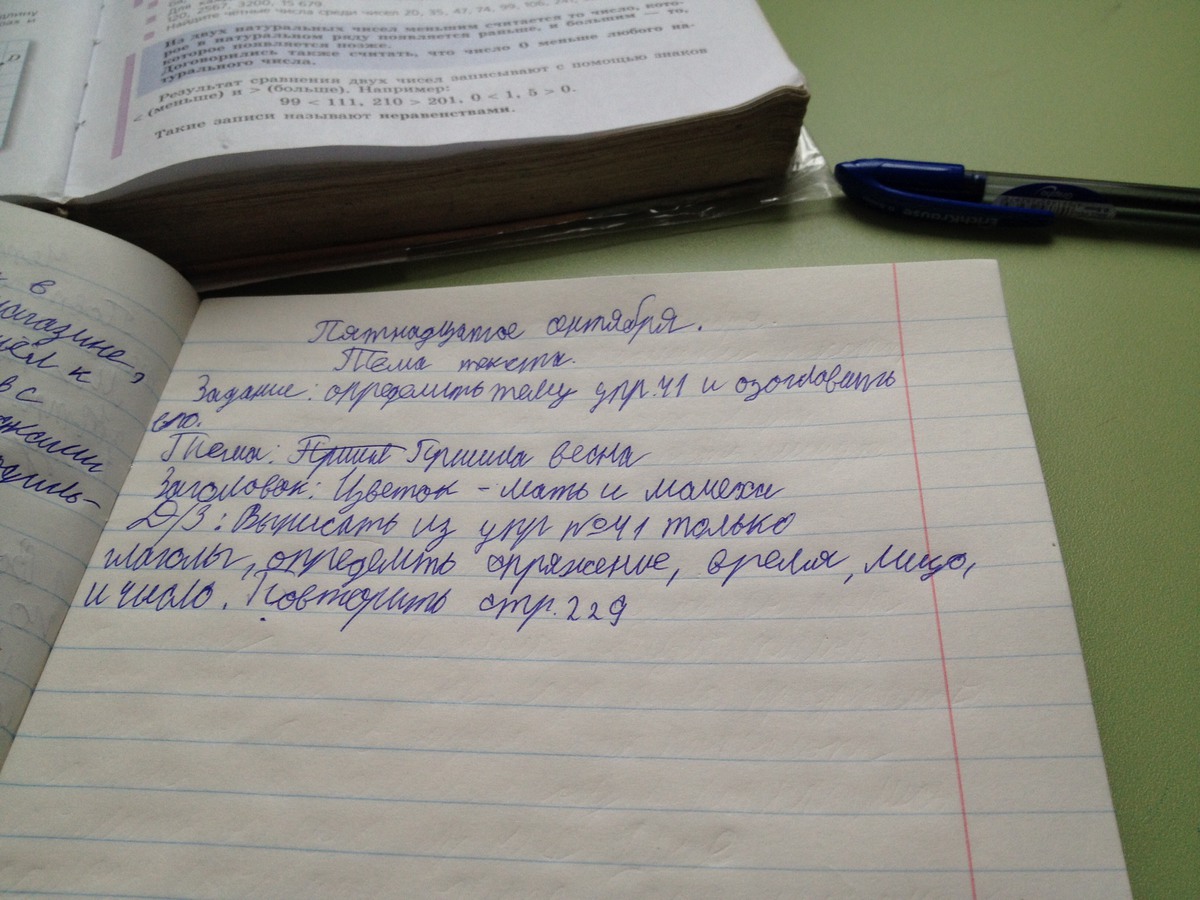 120, 2567, 3200, 15 679.
Найдите чётные числа среди чисел 20, 35, 47, 74, 99, 106,
Из двух натуральных чисел меньшим считается то число, кото-
рое в натуральном ряду появляется раньше, и большим — то,
которое появляется позже.
Договорились также считать, что число 0 меньше любого на-
турального числа.
Результат сравнения двух чисел записывают с помощью знаков
< (меньше) и > (больше). Например:
99 < 111, 210 > 201, 0 < 1, 5 > 0.
Такие записи называют неравенствами.
ErichKrause
в
магазине,
к
в с
Пятнадцатое сентября.
Тема текста.
Задание: определить тему упр. 41 и озаглавить
его.
Тема: Пришла весна
Заголовок: Цветок - мать и мачеха
Д/З: Выписать из упр №41 только
глаголы, определить спряжение, время, лицо,
и число. Повторить стр. 229